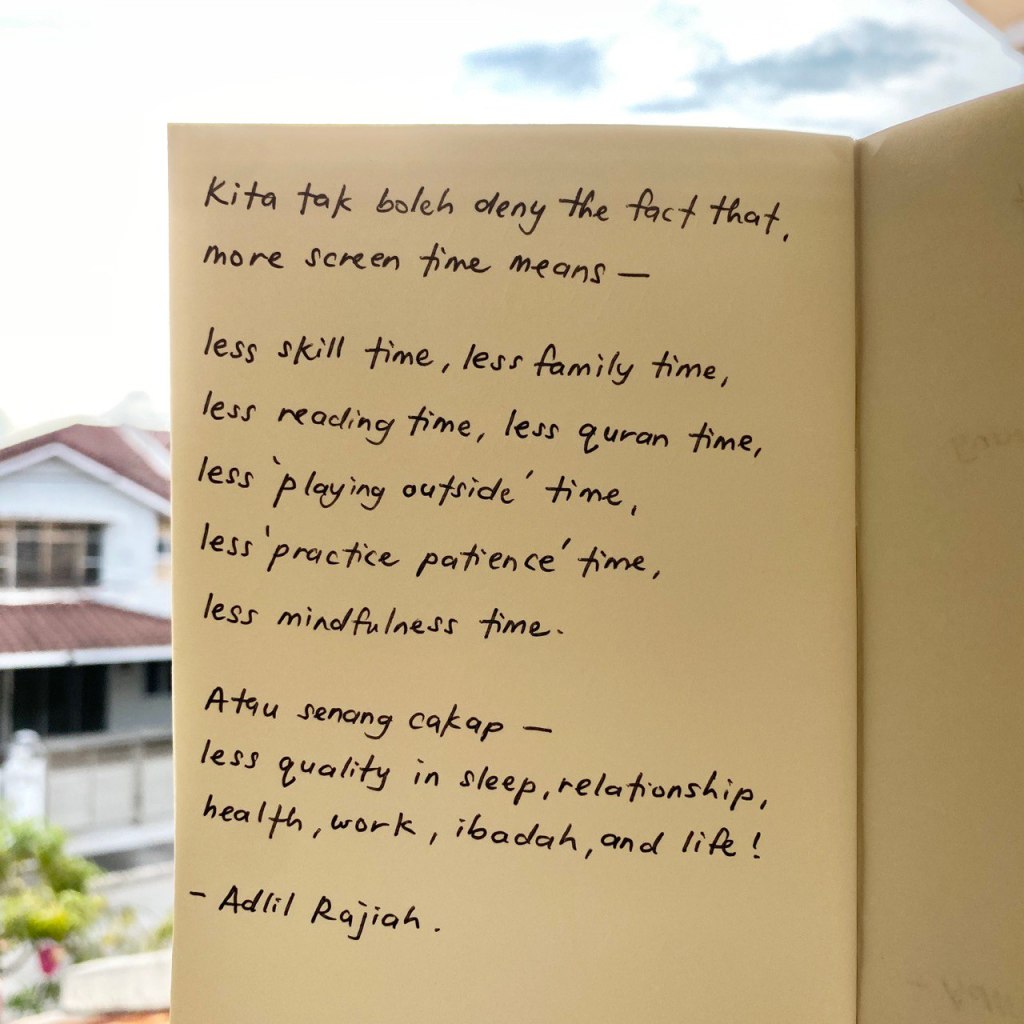 Kita tak boleh deny the fact that,
more screen time means —
less skill time, less family time,
less reading time, less quran time,
less 'playing outside' time,
less 'practice patience' time,
less mindfulness time.
Atau senang cakap —
less quality in sleep, relationship,
health, work, ibadah, and life!
- Adlil Rajiah.